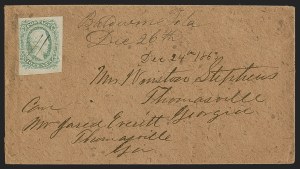 Baldwins Fla
Dec, 26th
Dec 24th 186
Mrs. Winston Stephens
Thomasville
Care
Georgia
Mr Jared Everitt
Thomasville
Geo